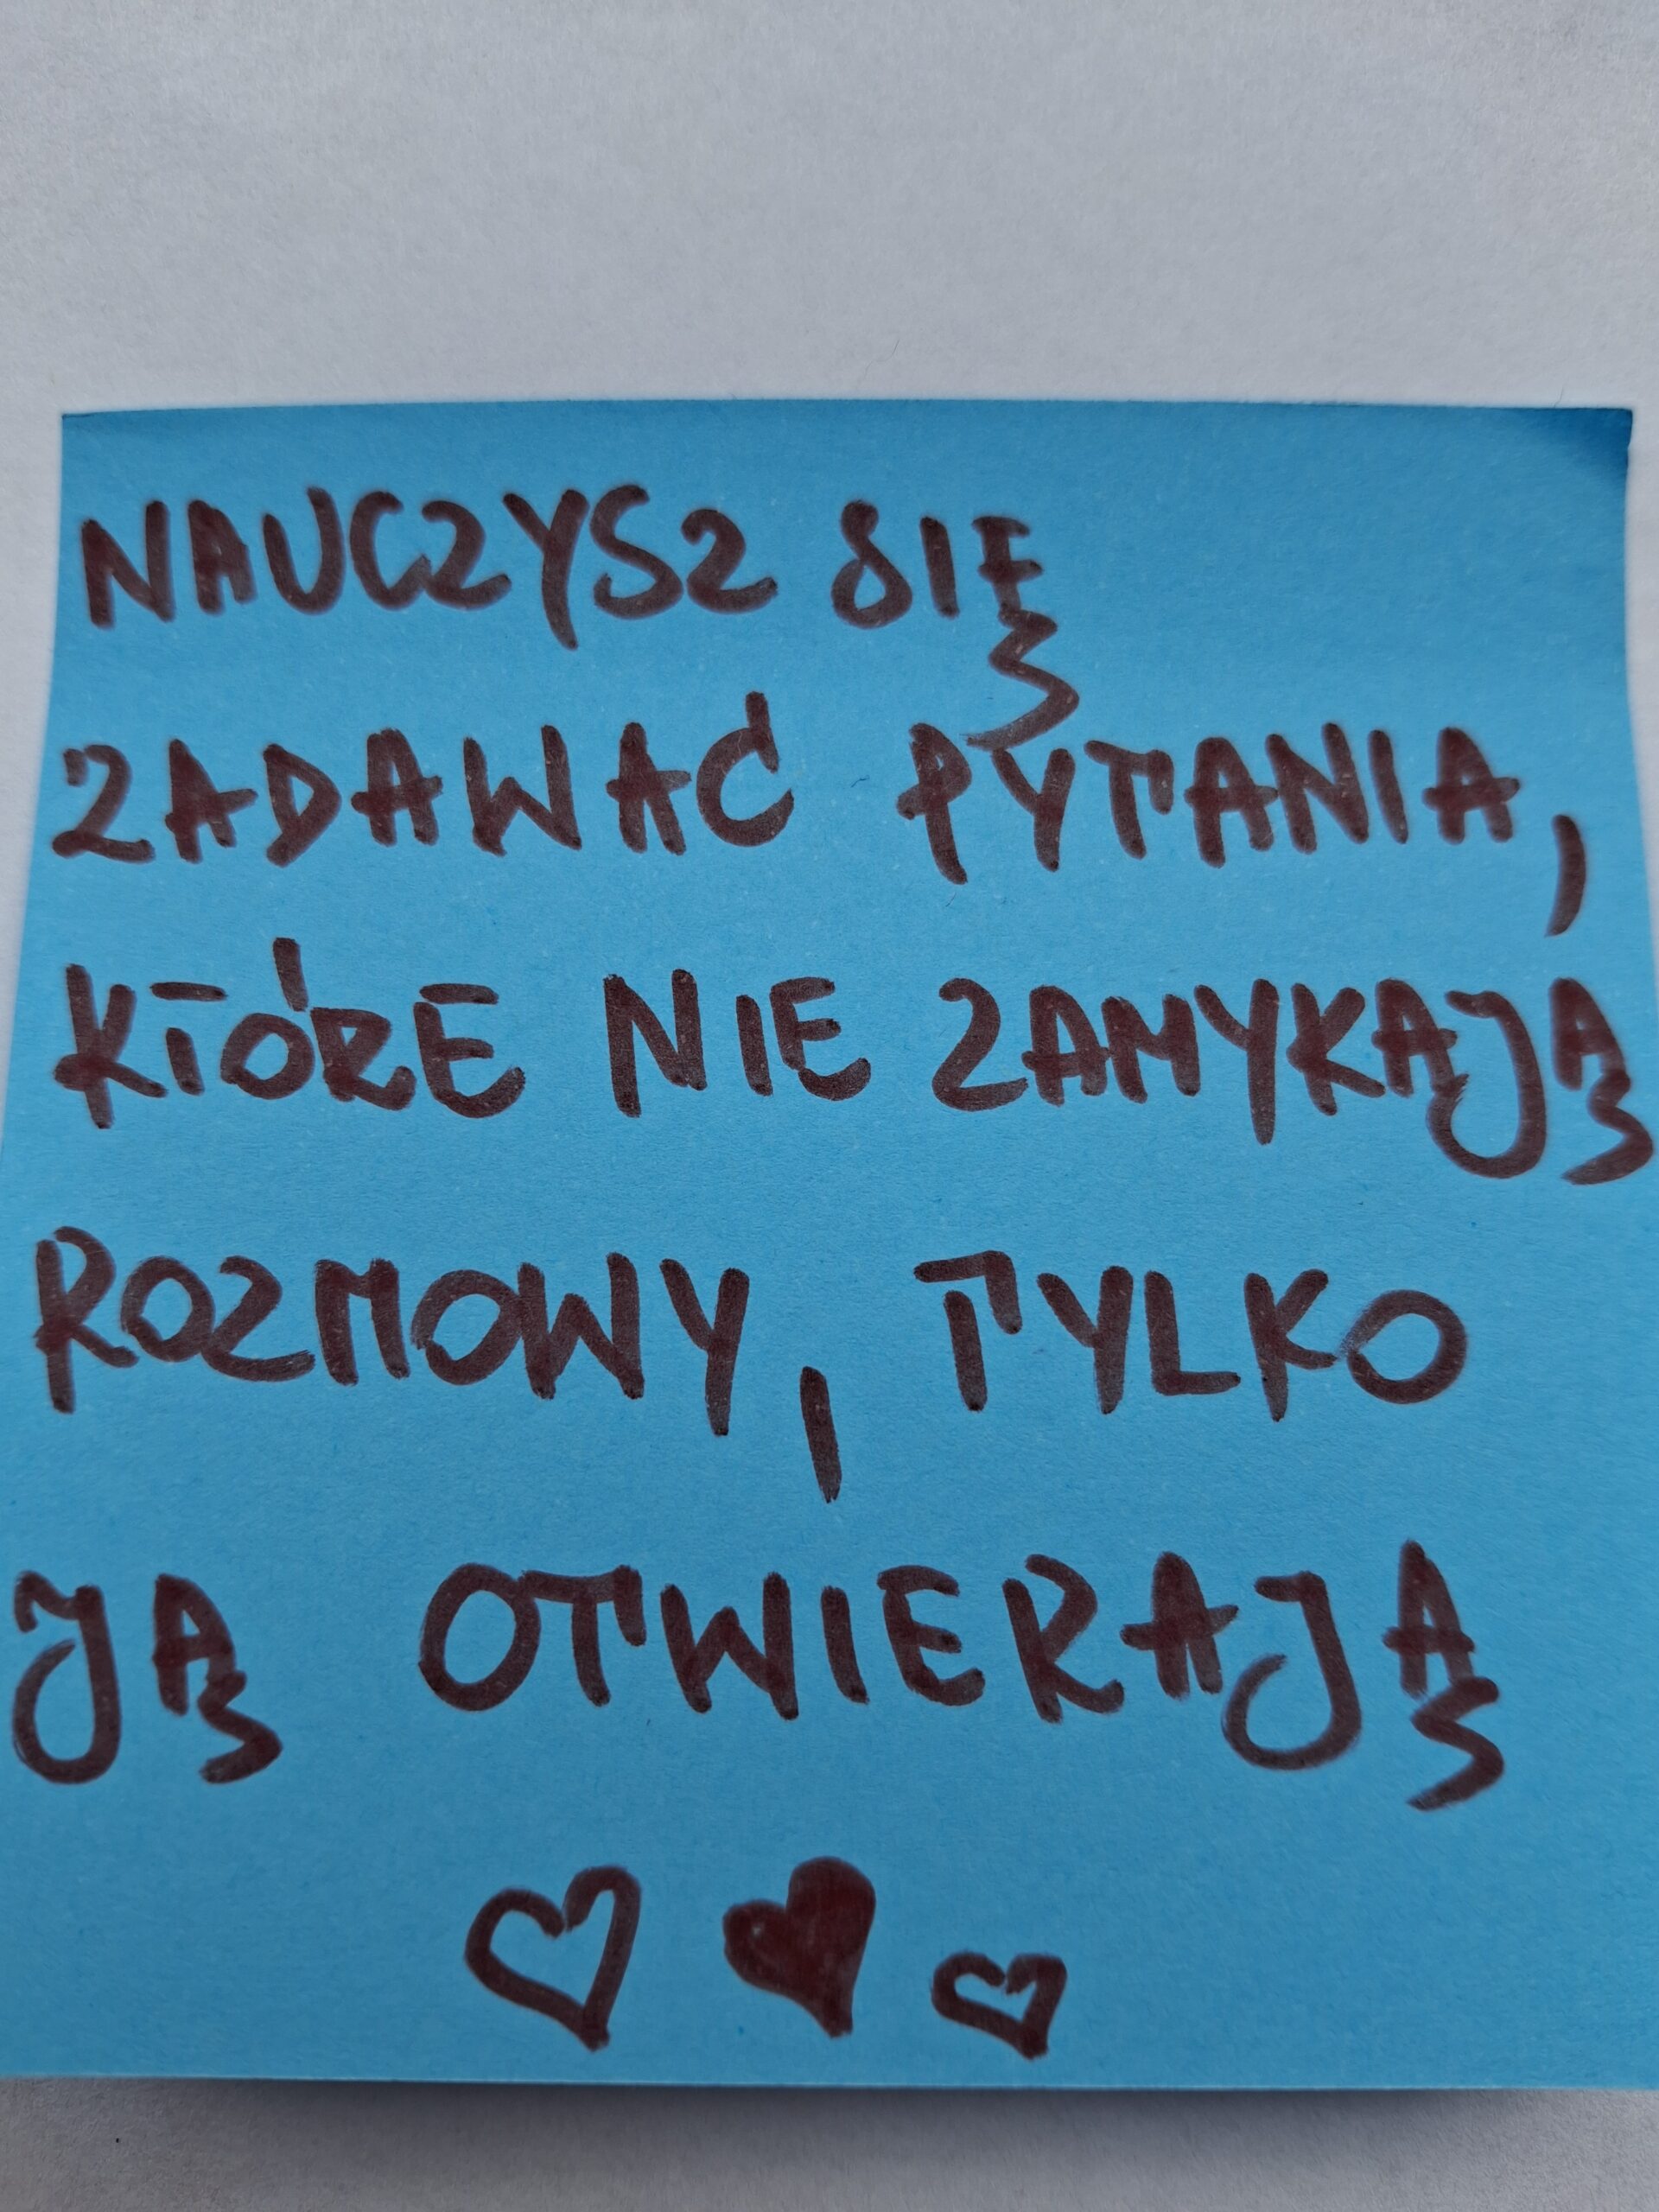 NAUCZYSZ SIĘ
ZADAWAĆ PYTANIA,
KTÓRE NIE ZAMYKAJĄ
ROZMOWY, TYLKO
JĄ OTWIERAJĄ